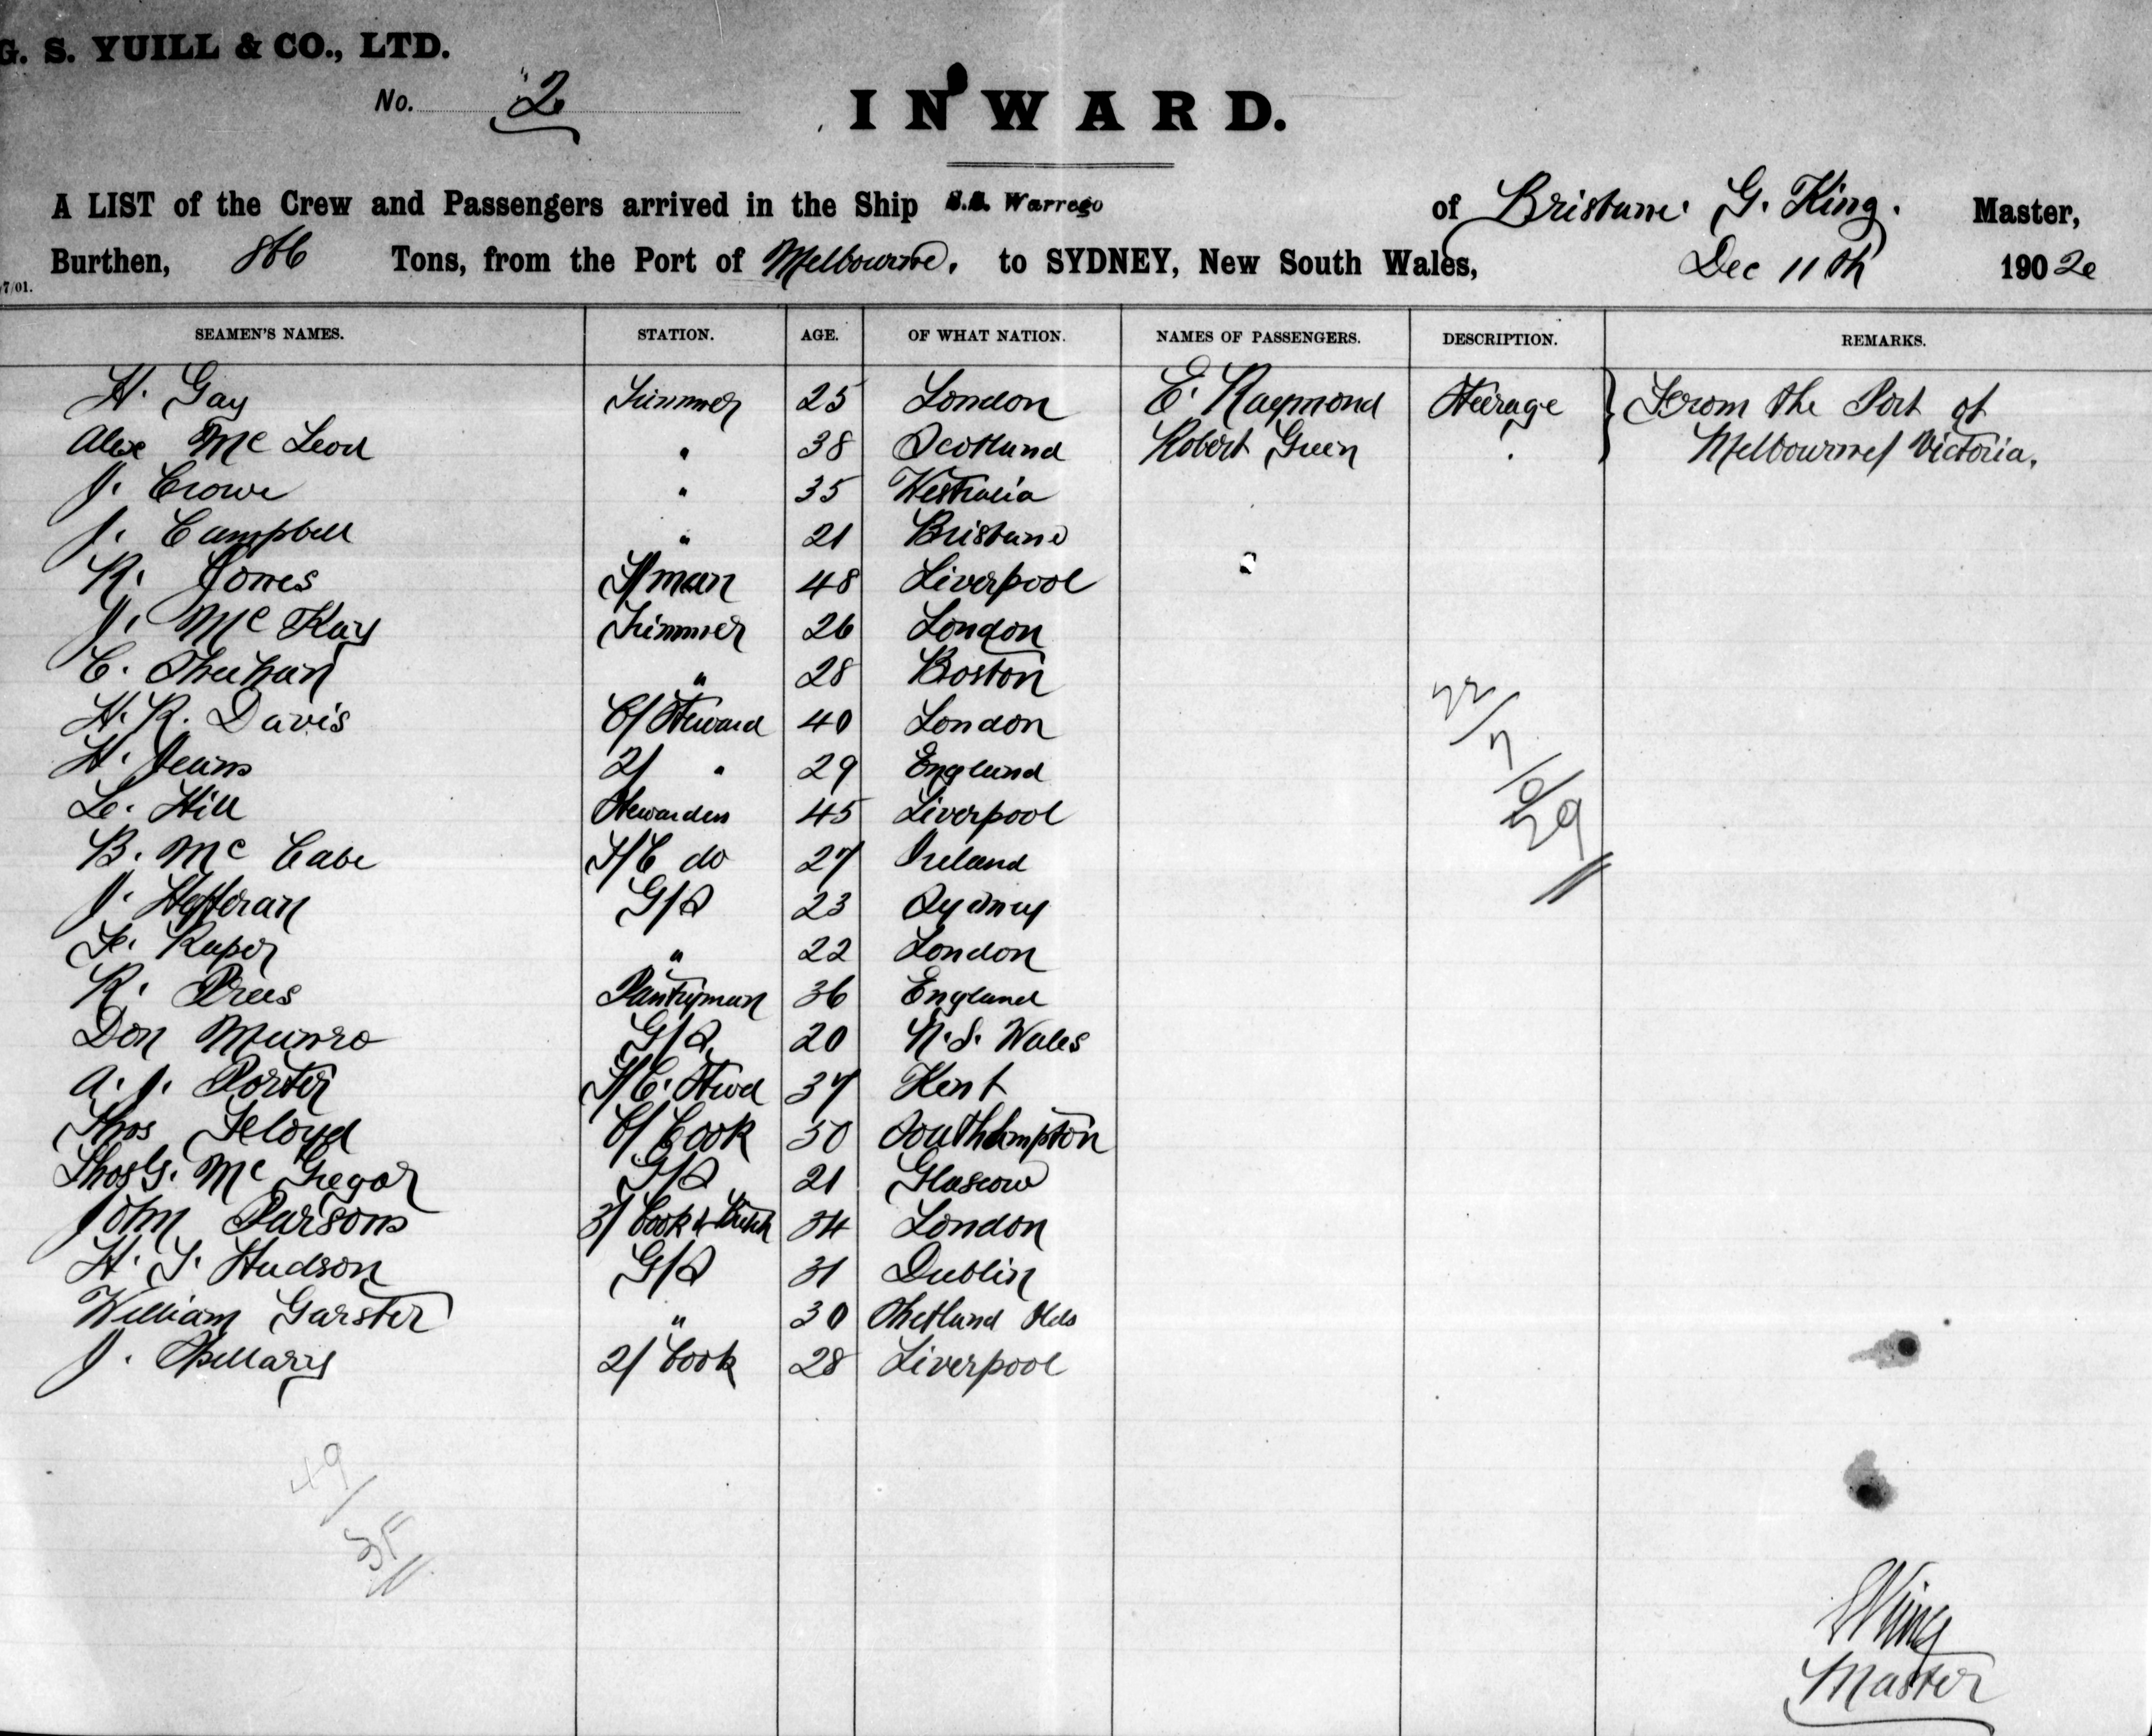 G. S. YUILL & CO., LTD.
No. 2
INWARD.
A LIST of the Crew and Passengers arrived in the Ship S.S. Warrego of Brisbane. G. King. Master,
Burthen, 866 Tons, from the Port of Melbourne. to SYDNEY, New South Wales, Dec 11th 1902
7/01.
SEAMEN'S NAMES. STATION. AGE. OF WHAT NATION. NAMES OF PASSENGERS. DESCRIPTION. REMARKS.
H. Gay Trimmer 25 London E. Raymond Steerage } From the Port of
Alex Mc Leod " 38 Scotland Robert Green " Melbourne/ Victoria.
J. Crowe " 35 Westralia
J. Campbell " 21 Brisbane
R. Jones F/man 48 Liverpool
J. Mc Kay Trimmer 26 London
C. Sheehan " 28 Boston
H. R. Davis C/ Steward 40 London
H. Jeans 2/ " 29 England
Le. Hill Stewardess 45 Liverpool
B. Mc Cabe F/C do 27 Ireland
J. Hefferan G/S 23 Sydney
F. Raper " 22 London
R. Prees Pantryman 36 England
Don Munro G/S. 20 N. S. Wales
A. J. Porter F/C. Stwd 37 Kent
Thos Floyd C/ Cook 50 Southampton
Thos G. Mc Gregor G/S 21 Glascow
John Parsons 3/ Cook & Butch 34 London
H. T. Hudson G/S 31 Dublin
William Garster " 30 Shetland Ilds
J. Spellary 2/ Cook 28 Liverpool
22/7/0/29
49/
GKing
Master